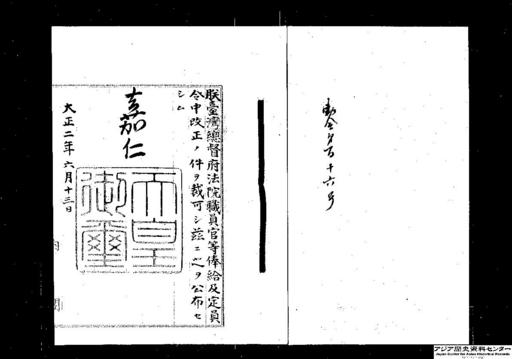 勅令第百十六号
朕臺灣總督府法院職員官等俸給及定員
令中改正ノ件ヲ裁可シ茲ニ之ヲ公布セ
シム
嘉仁
天皇
御璽
大正二年六月十三日
内閣
アジア歴史資料センター
Japan Center for Asian Historical Records